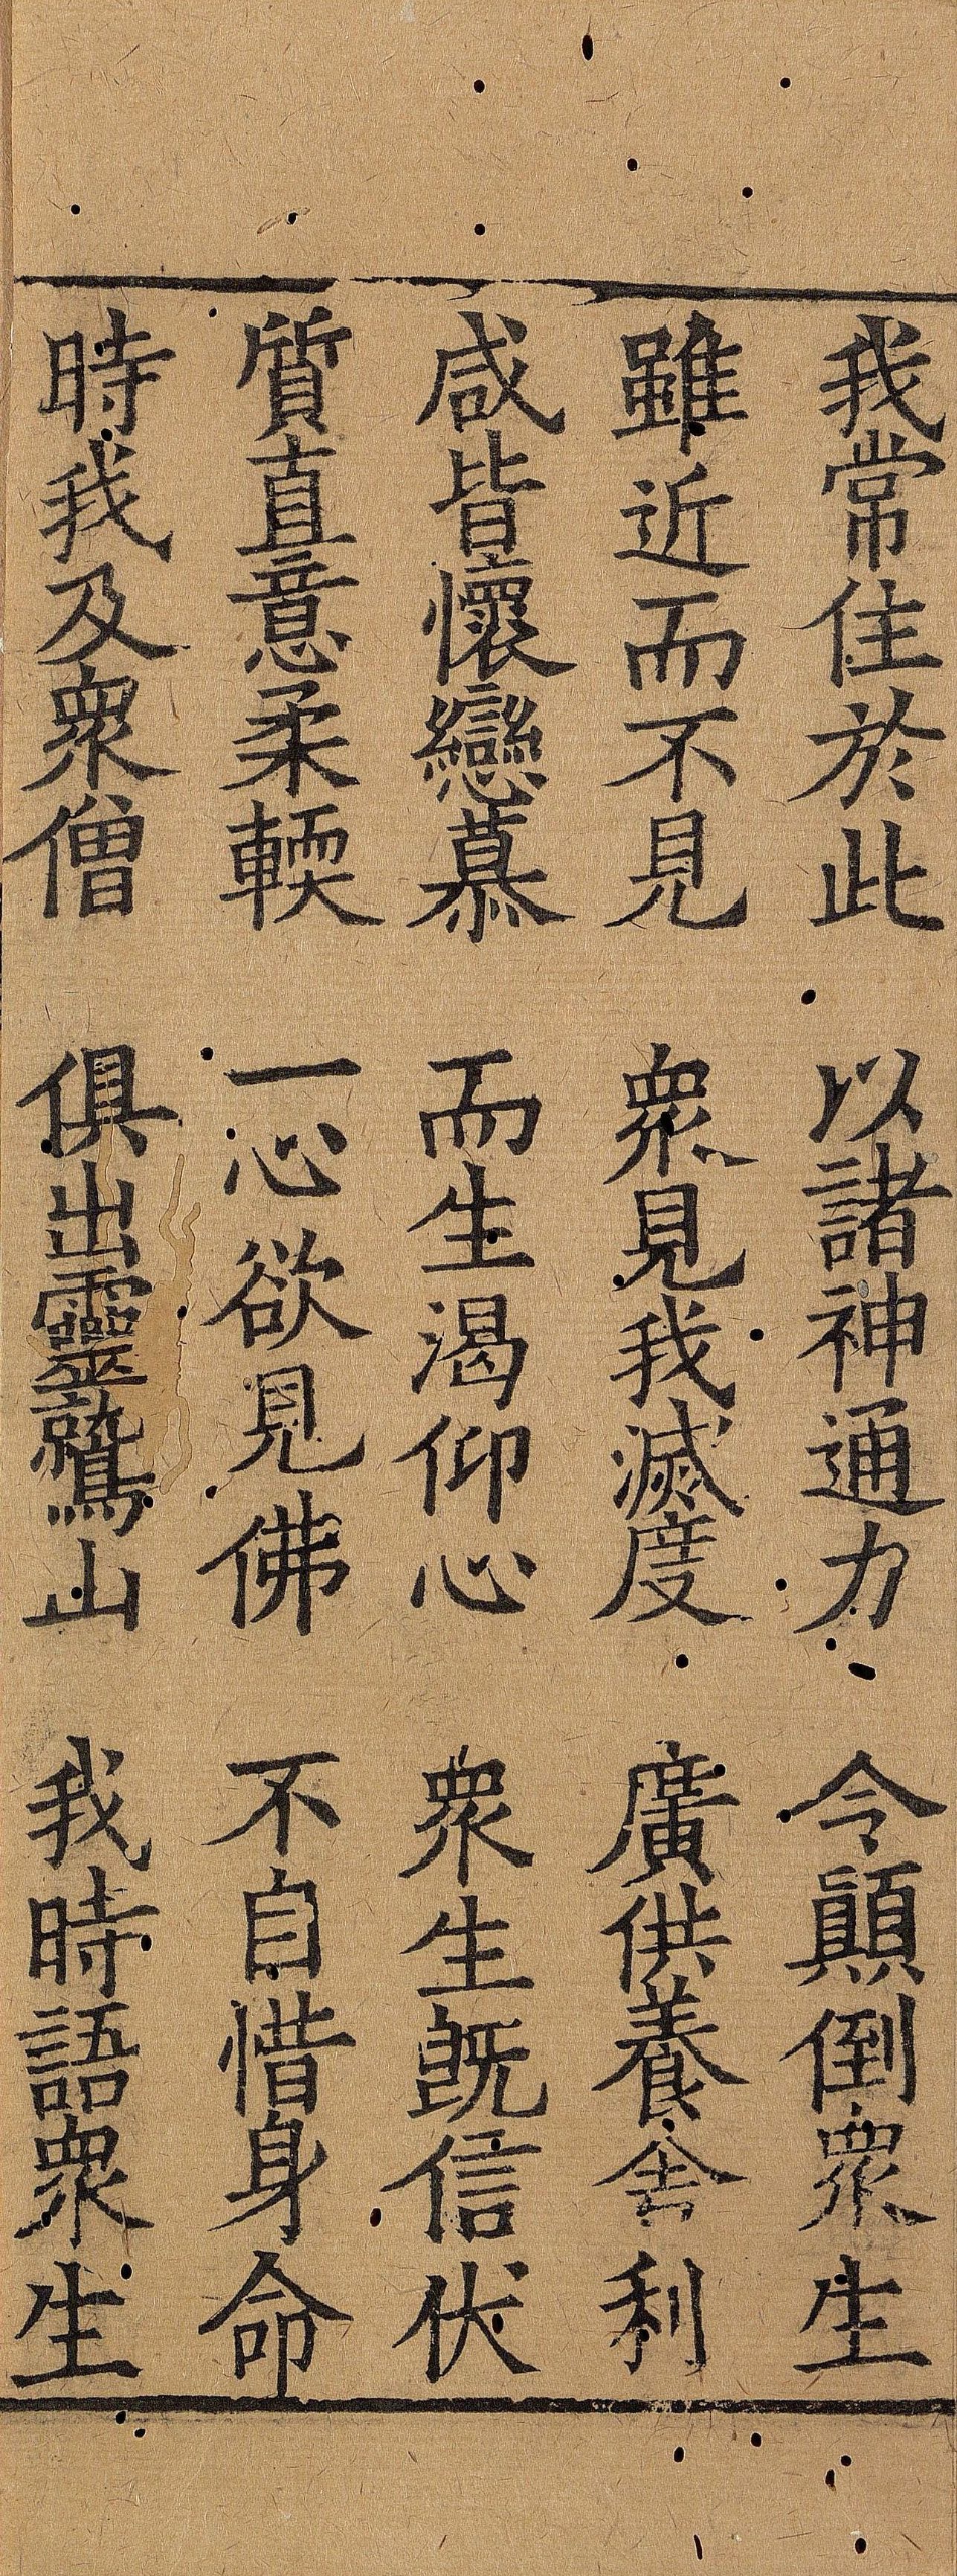 我常住於此 以諸神通力 令顛倒衆生
雖近而不見 衆見我滅度 廣供養舍利
咸皆懷戀慕 而生渴仰心 衆生既信伏
質直意柔輭 一心欲見佛 不自惜身命
時我及衆僧 俱出靈鷲山 我時語衆生